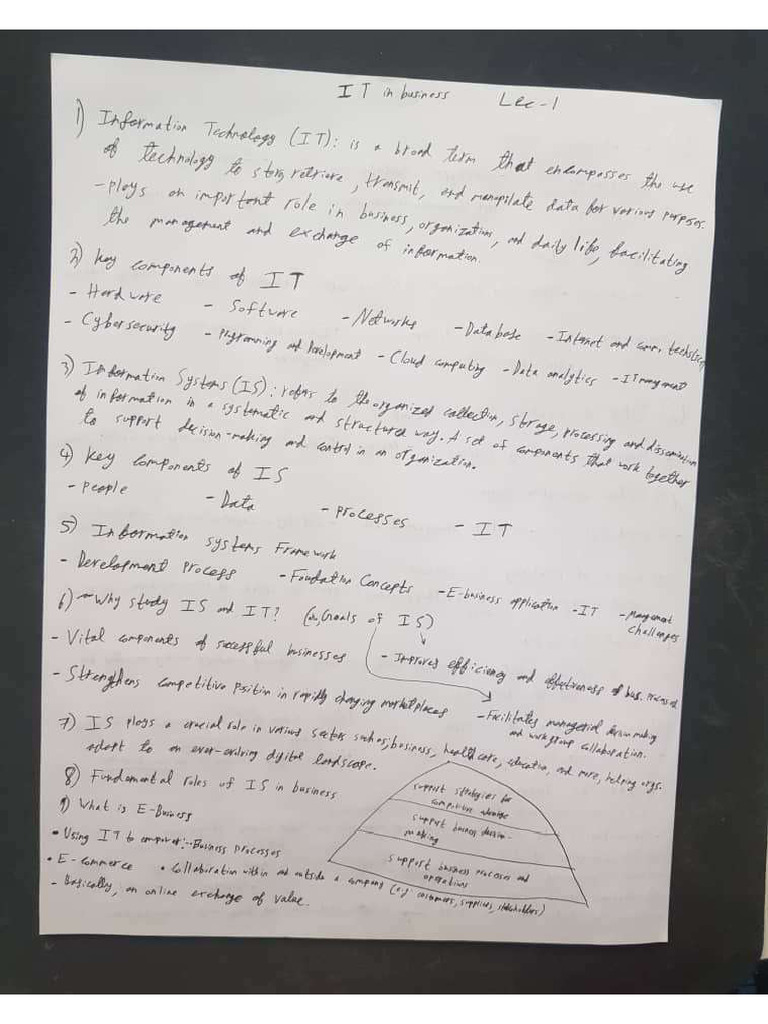 IT in business Lec-1
1) Information Technology (IT): is a broad term that encompasses the use
of technology to store, retrieve, transmit, and manipulate data for various purposes.
- Plays an important role in business, organizations, and daily life, facilitating
the management and exchange of information.
2) Key components of IT
- Hardware - Software - Networks - Database - Internet and comm. techs
- Cybersecurity - Programming and Development - Cloud computing - Data analytics - IT mangment
3) Information Systems (IS): refers to the organized collection, storage, processing and dissemination
of information in a systematic and structured way. A set of components that work together
to support decision-making and control in an organization.
4) Key components of IS
- People - Data - Processes - IT
5) Information systems Framework
- Development Process - Foundation Concepts - E-business application - IT - Management
challenges
6) - Why study IS and IT? (Goals of IS)
- Vital components of successful businesses - Improved efficiency and effectiveness of bus. processes
- Strengthens competitive position in rapidly changing marketplaces - Facilitates managerial decision making
and workgroup collaboration.
7) IS plays a crucial role in various sectors such as; business, healthcare, education, and more, helping orgs.
adapt to an ever-evolving digital landscape.
8) Fundamental roles of IS in business
support strategies for
competitive advantage
support business decision-
making
support business processes and
operations
9) What is E-Business
• Using IT to empower:- Business processes
• E-commerce • Collaboration within and outside a company (e.g: customers, suppliers, stakeholders)
- Basically, an online exchange of value.